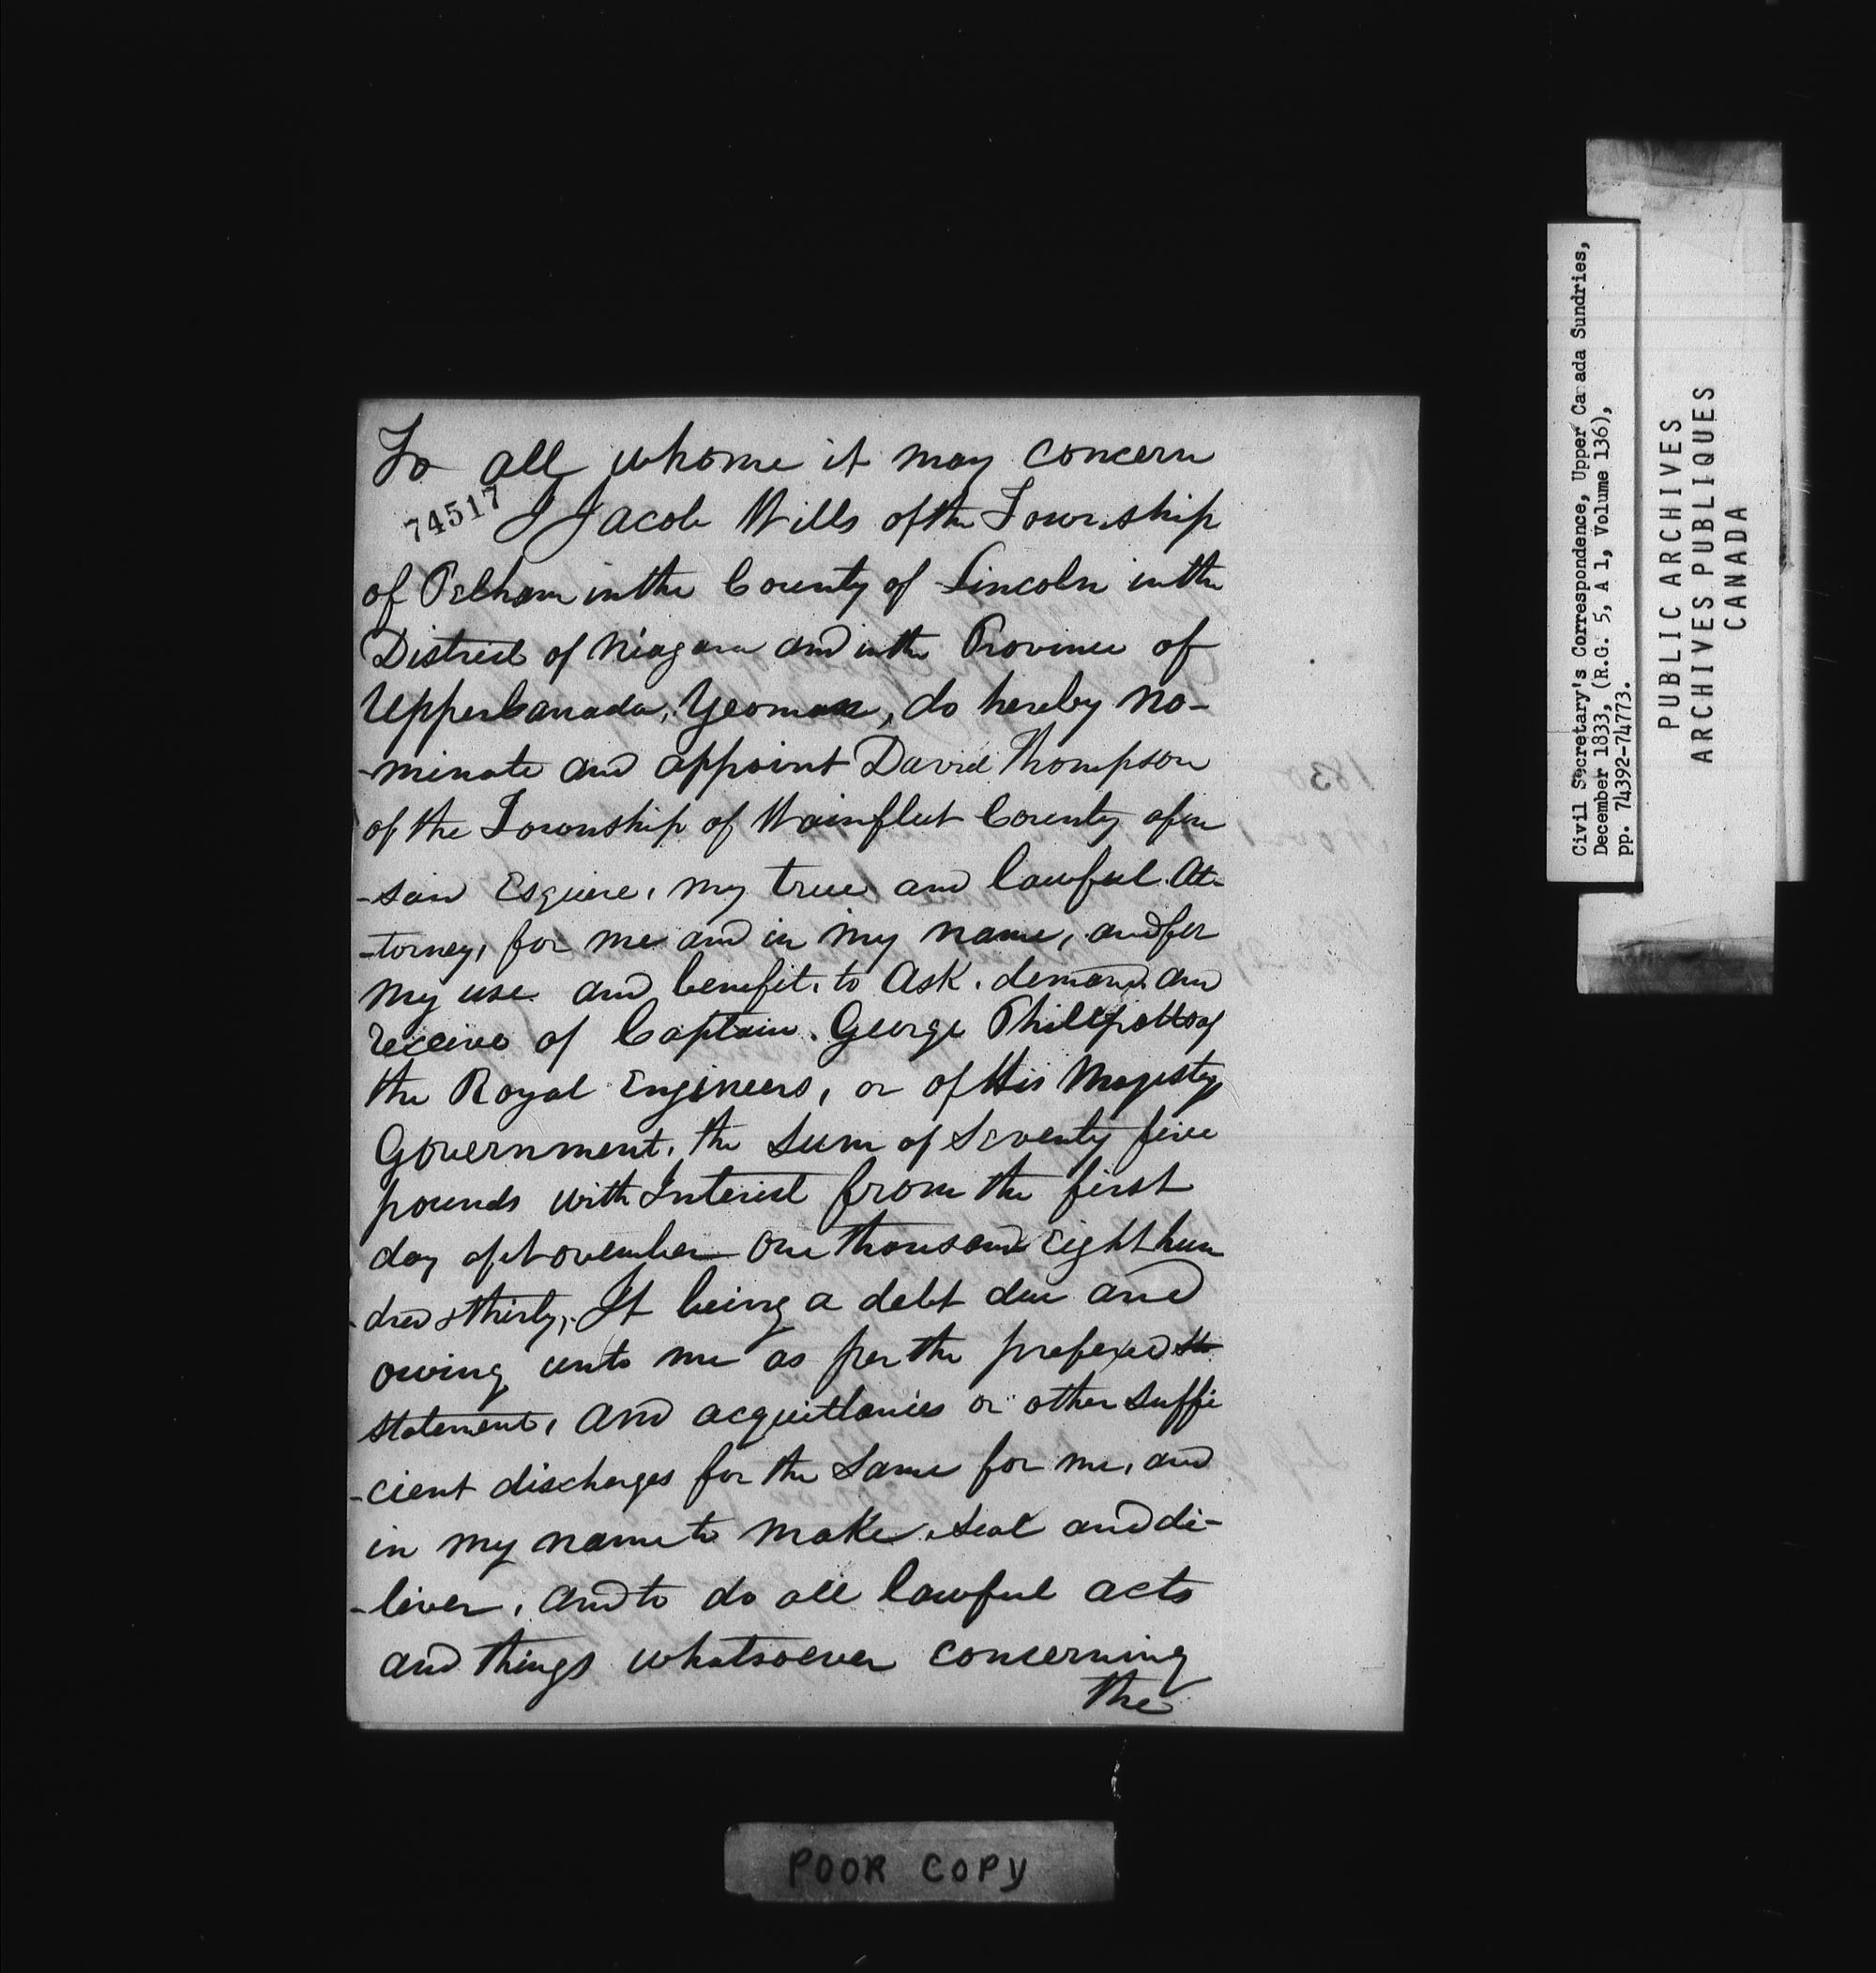 To all whome it may concern
74517
I Jacob Wills of the Township
of Pelham in the County of Lincoln in the
District of Niagara and in the Province of
Upper Canada, Yeoman, do hereby no-
-minate and appoint David Thompson
of the Township of Wainfleet County afore
-said Esquire, my true and lawful At-
-torney, for me and in my name, and for
my use and benefit, to ask, demand and
receive of Captain George Phillpotts of
the Royal Engineers, or of His Majestys
Government, the sum of Seventy five
pounds with Interest from the first
day of November One thousand Eight hun
-dred & thirty, It being a debt due and
owing unto me as per the prefexed
statement, and acquittances or other suffi
-cient discharges for the same for me, and
in my name to make, seal and de-
-liver, and to do all lawful acts
and things whatsoever concerning
the
Civil Secretary's Correspondence, Upper Canada Sundries,
December 1833, (R.G. 5, A 1, Volume 136),
pp. 74392-74773.
PUBLIC ARCHIVES
ARCHIVES PUBLIQUES
CANADA
POOR COPY